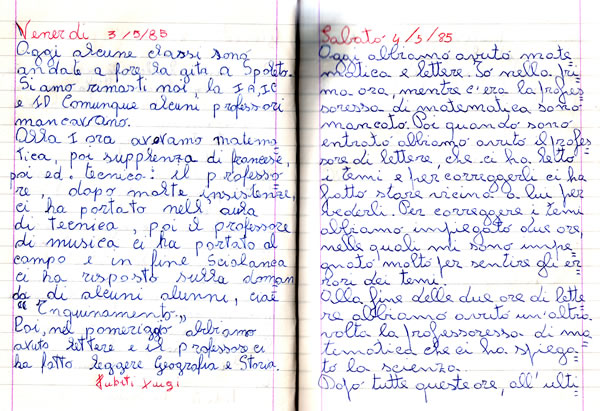 Venerdi 3/5/85
Oggi alcune classi sono
andate a fare la gita a Spoleto.
Siamo rimasti noi, la IA, IC
e ID Comunque alcuni professori
mancavano.
Alla I ora avevamo matema
tica, poi supplenza di francese,
poi ed. tecnica: il professo
re, dopo molte insistenze,
ci ha portato nell'aula
di tecnica, poi il professore
di musica ci ha portato al
campo e in fine Scialanca
ci ha risposto sulla doman
da di alcuni alunni, cioè
"Inquinamento"
Poi, nel pomeriggio abbiamo
avuto lettere e il professore ci
ha fatto leggere Geografia e Storia.
Sabato 4/5/85
Oggi abbiamo avuto mate=
matica e lettere. Io nella pri=
ma ora, mentre c'era la profes=
soressa di matematica sono
mancato. Poi quando sono
entrato abbiamo avuto il profes=
sore di lettere, che ci ha letto
i temi e per correggerli ci ha
fatto stare vicino a lui per
vederli. Per correggere i temi
abbiamo impiegato due ore,
nelle quali mi sono impe=
gnato molto per sentire gli er=
rori dei temi.
Alla fine delle due ore di lette=
re abbiamo avuto un'altra
volta la professoressa di ma=
tematica che ci ha spiega=
to la scienza.
Dopo tutte queste ore, all'ulti=